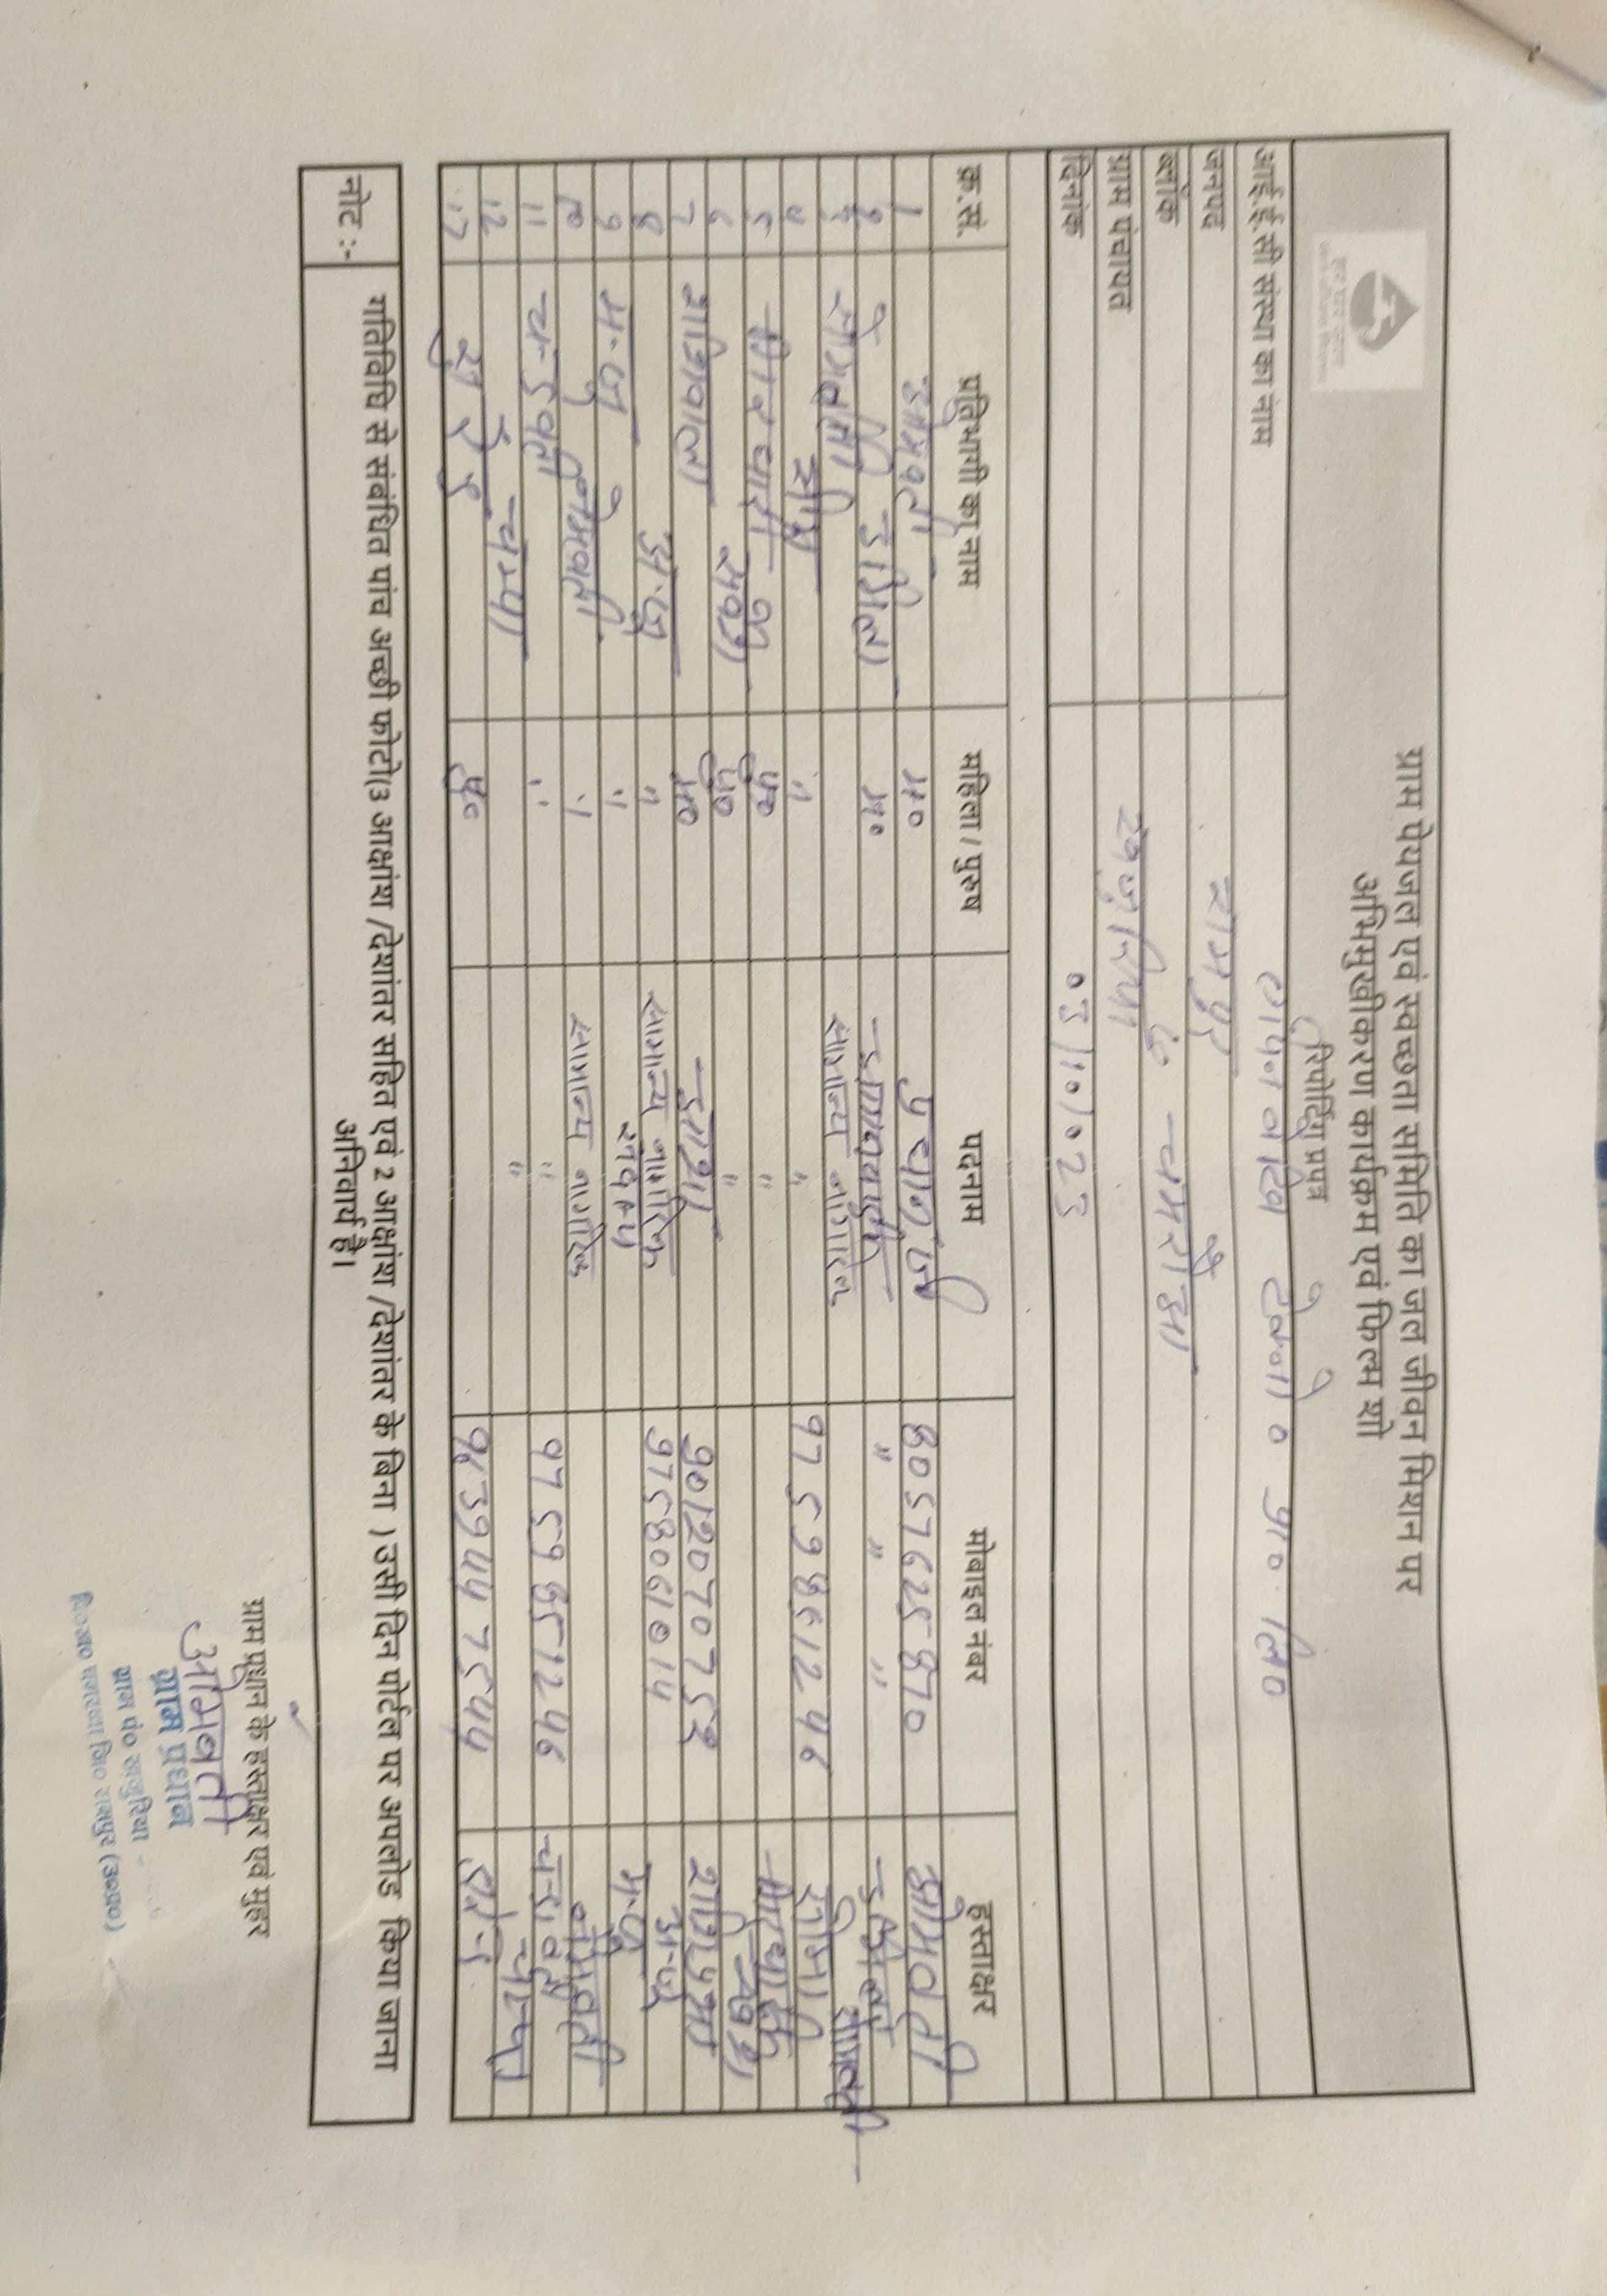 हर घर जल
जल जीवन मिशन
ग्राम पेयजल एवं स्वच्छता समिति का जल जीवन मिशन पर
अभिमुखीकरण कार्यक्रम एवं फिल्म शो
रिपोर्टिंग प्रपत्र
आई.ई.सी संस्था का नाम
जनपद रामपुर
ब्लॉक चमरौआ
ग्राम पंचायत खजुरिया
दिनांक 03/10/023
क्र.सं. प्रतिभागी का नाम महिला / पुरुष पदनाम मोबाइल नंबर हस्ताक्षर
1 ओमवती म० प्रधान जी 8057625870 ओमवती
2 उर्मिला म० " " " उर्मिला
3 सोमवती सामान्य नागरिक
4 " " 9759861246
5 पु० "
6 पु० "
7 शशिबाला म० आशा 9012070752
8 अन्जु " सामान्य नागरिक 9758061014
9 मन्जु " सदस्य मन्जु
10 प्रेमवती " सामान्य नागरिक प्रेमवती
11 चन्द्रवती " " 9759651246 चन्द्रवती
12 चम्पा " चम्पा
13 सुरेन्द्र पु० 9639447544
नोट :- गतिविधि से संबंधित पांच अच्छी फोटो(3 आक्षांश /देशांतर सहित एवं 2 आक्षांश /देशांतर के बिना ) उसी दिन पोर्टल पर अपलोड किया जाना
अनिवार्य है।
ग्राम प्रधान के हस्ताक्षर एवं मुहर
ओमवती
ग्राम प्रधान
ग्राम पं० खजुरिया
वि०ख० चमरव्वा जि० रामपुर (उ०प्र०)